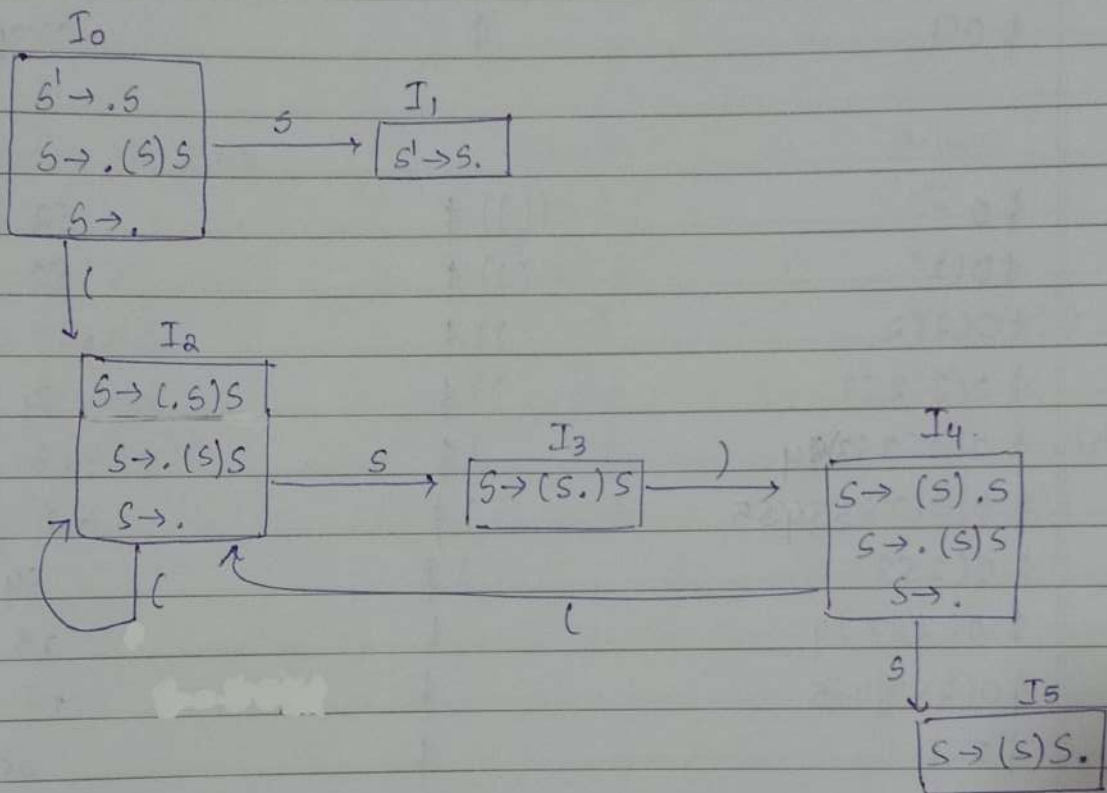 I₀
S' → .S
S → .(S)S
S → .
S
I₁
S' → S.
(
I₂
S → (.S)S
S → .(S)S
S → .
(
S
I₃
S → (S.)S
)
I₄
S → (S).S
S → .(S)S
S → .
(
S
I₅
S → (S)S.